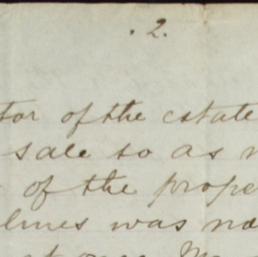 . 2.
tor of the estate
sale so as n
of the prope
lmes was no